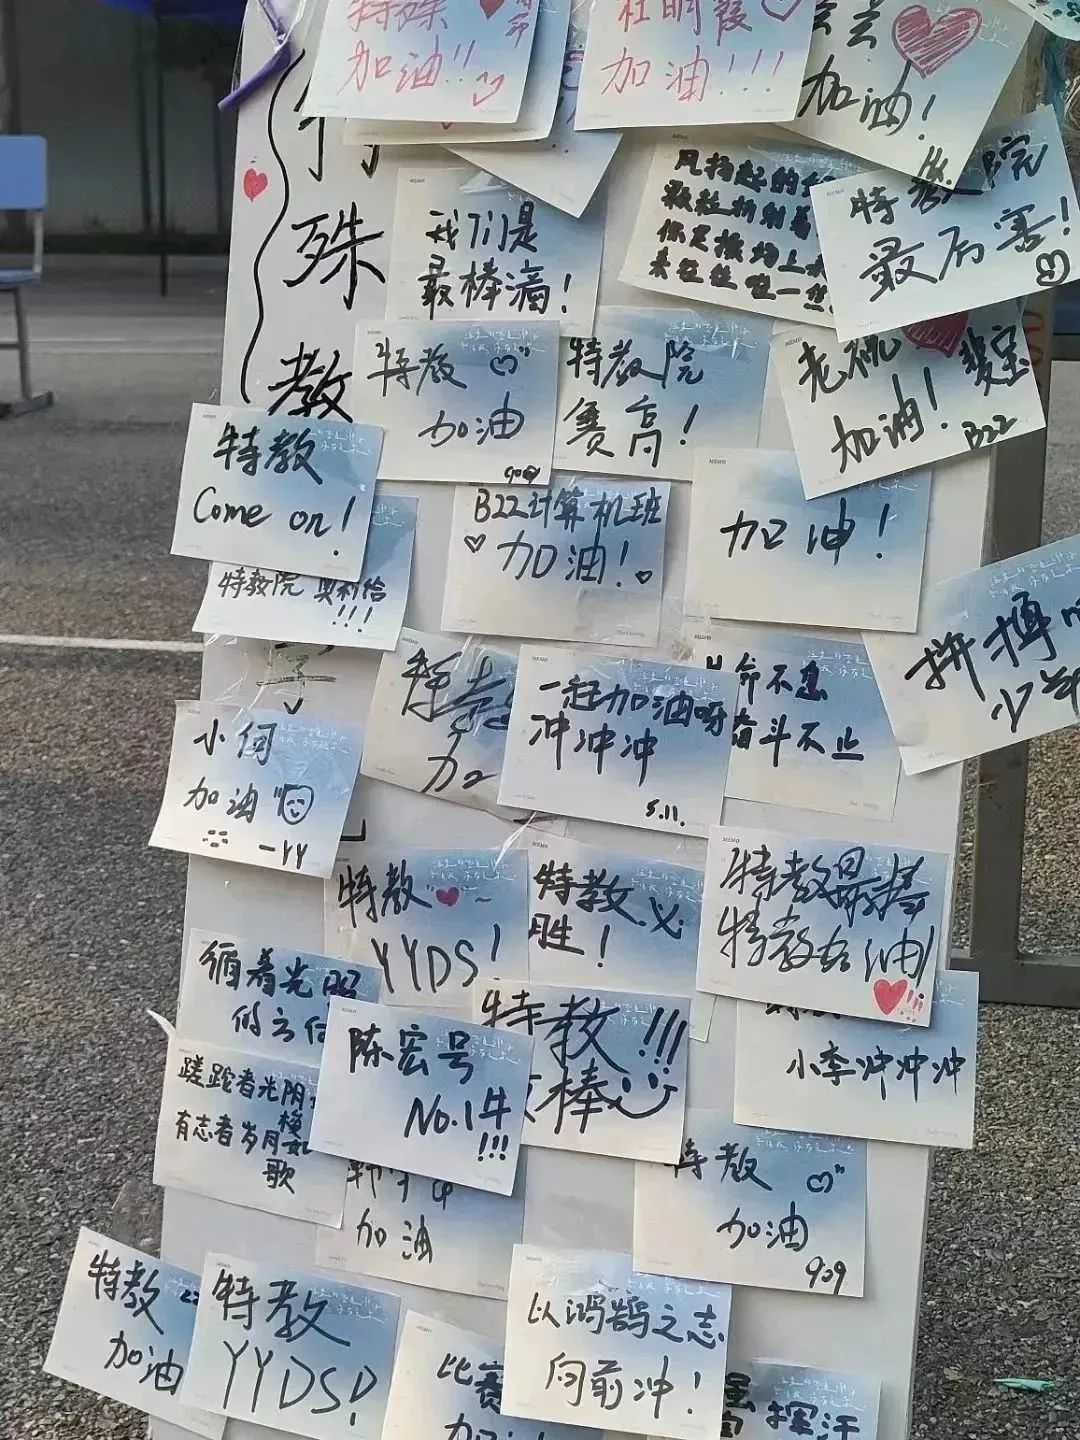 特殊
加油!!
杜明霞
加油!!!
加油!
特教院
最厉害!
风扬起的
颗粒折射着
你是操场上
来往往唯一
我们是
最棒滴!
特教
加油
909
特教院
赛高!
老祝
加油!
斐宝
B22
殊
教
特教
Come on!
特教院 奥利给
!!!
B22计算机班
加油!
加油!
拼搏
学
小何
加油
—YY
特教
加
一起加油呀
冲冲冲
5.11.
命不息
奋斗不止
特教
YYDS!
特教必
胜!
特教最棒
特教加油!
循着光照
的方向
陈宏号
No.1牛
!!!
特教!!!
最棒
小李冲冲冲
蹉跎者光阴
有志者岁月
歌
加油
特教
加油
909
特教
加油
特教
YYDS!
以鸿鹄之志
向前冲!
比赛
加油
挥汗